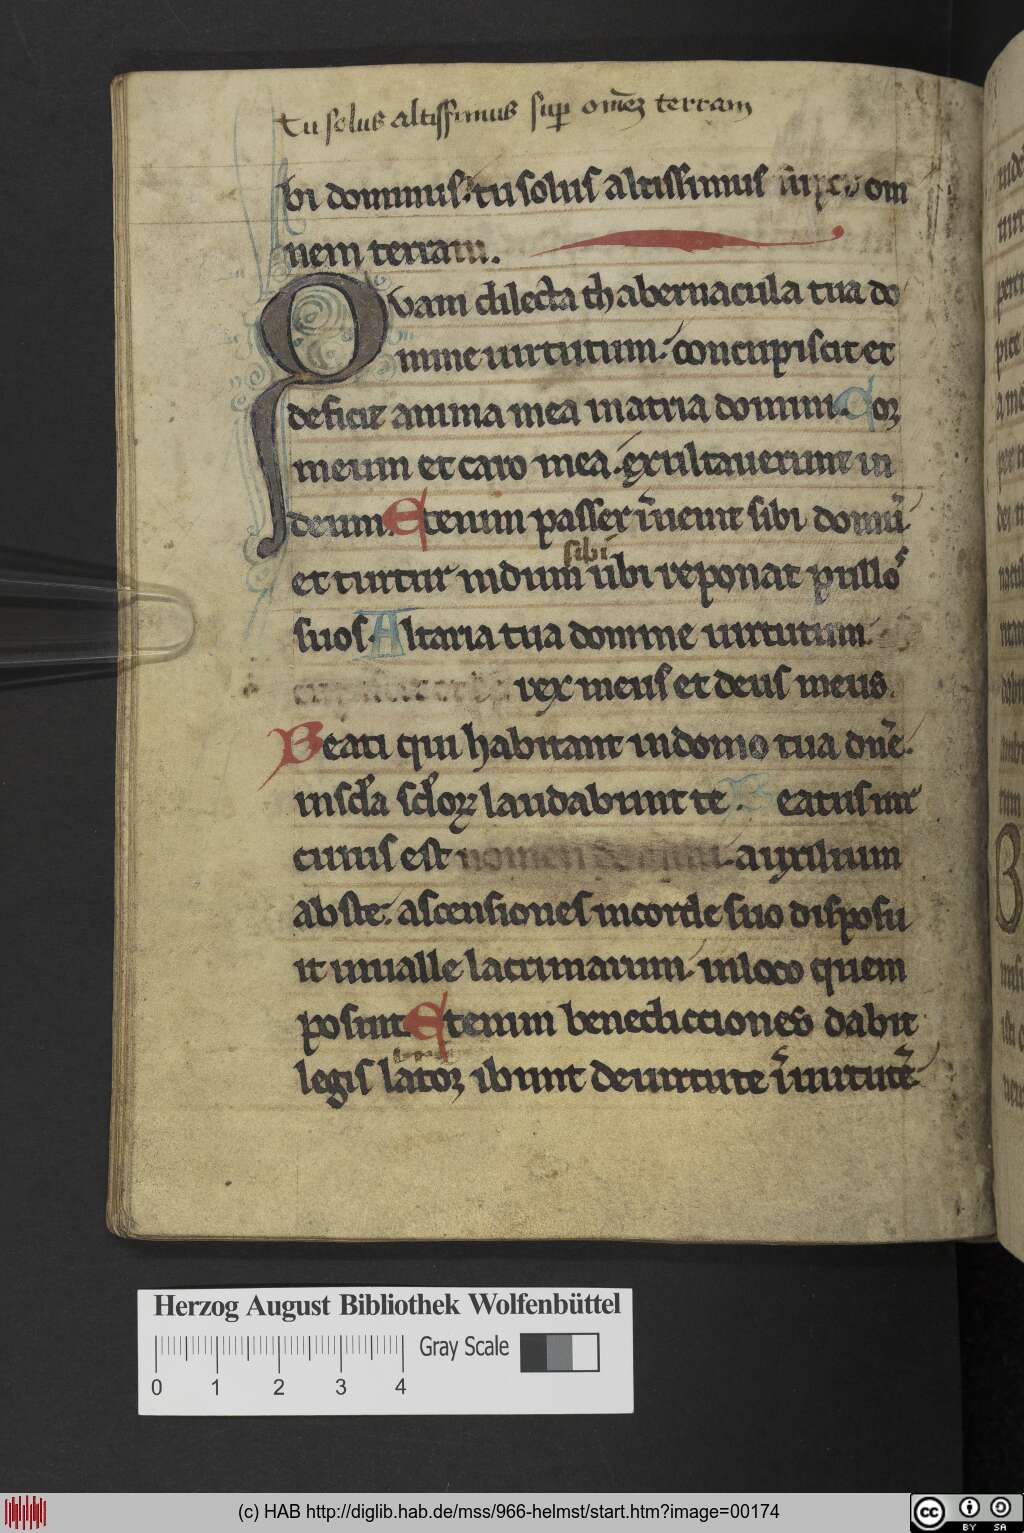 tu solus altissimus sup om̄eȝ terram
bi dominus. tu solus altissimus om
nem terram.
Quam dilecta thabernacula tua do
mine uirtutum. concupiscit et
deficit anima mea inatria domini. Coꝝ
meum et caro mea. exultauerunt in
deum. Etenim passer īuenit sibi domū.
sibi
et turtur nidum ubi reponat pullo
suos. Altaria tua domine uirtutum.
rex meus et deus meus.
Beati qui habitant in domo tua dn̄e.
in scl̄a scl̄oꝝ laudabunt te. Beatus uir
cuius est auxilium
abs te. ascensiones in corde suo disposu
it in ualle lacrimarum. in loco quem
posuit. Etenim benedictiones dabit
legis latoꝝ ibunt de uirtute ī uirtutē.
Herzog August Bibliothek Wolfenbüttel
Gray Scale
0 1 2 3 4
(c) HAB http://diglib.hab.de/mss/966-helmst/start.htm?image=00174
cc BY SA